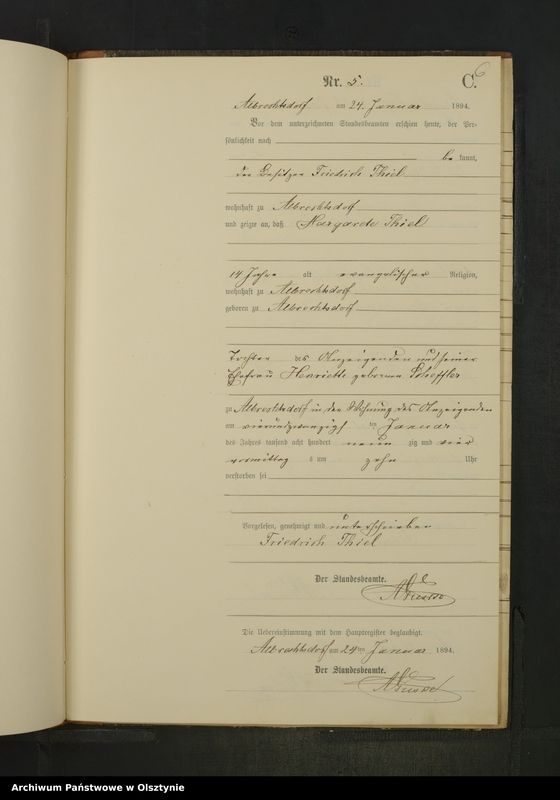 Nr. 5. C.
6
Albrechtsdorf am 24. Januar 1894.
Vor dem unterzeichneten Standesbeamten erschien heute, der Per-
sönlichkeit nach
be kannt,
der Besitzer Friedrich Thiel
wohnhaft zu Albrechtsdorf
und zeigte an, daß Margarete Thiel
14 Jahre alt evangelischer Religion,
wohnhaft zu Albrechtsdorf
geboren zu Albrechtsdorf
Tochter des Anzeigenden und seiner
Ehefrau Henriette geborenen Scheffler
zu Albrechtsdorf in der Wohnung des Anzeigenden
am vierundzwanzigsten Januar
des Jahres tausend acht hundert neun zig und vier
vormittag s um zehn Uhr
verstorben sei
Vorgelesen, genehmigt und unterschrieben
Friedrich Thiel
Der Standesbeamte.
Die Uebereinstimmung mit dem Hauptregister beglaubigt.
Albrechtsdorf am 24ten Januar 1894.
Der Standesbeamte.
Archiwum Państwowe w Olsztynie